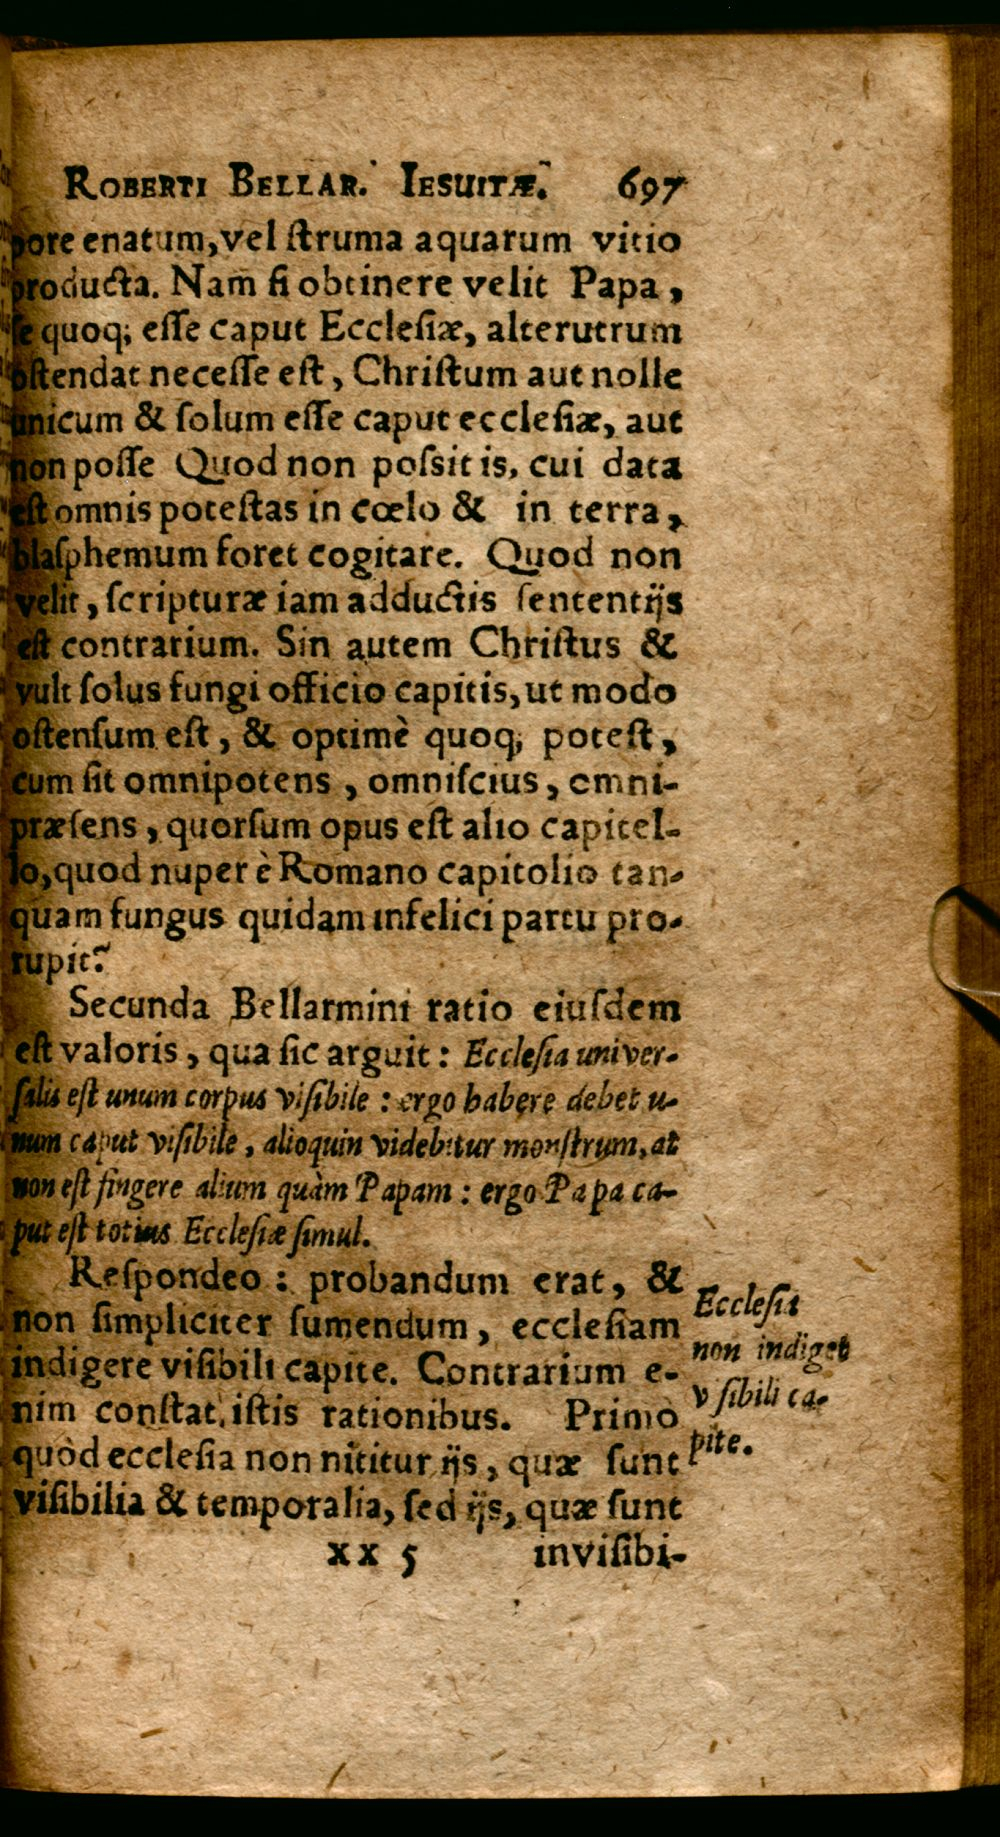 ROBERTI BELLAR. IESUITÆ. 697
pore enatum, vel ſtruma aquarum vitio
producta. Nam ſi obtinere velit Papa,
ſe quoq; eſſe caput Eccleſiæ, alterutrum
oſtendat neceſſe eſt, Chriſtum aut nolle
unicum & ſolum eſſe caput eccleſiæ, aut
non poſſe Quod non poſsit is, cui data
eſt omnis poteſtas in cœlo & in terra,
blaſphemum foret cogitare. Quod non
velit, ſcripturæ iam adductis ſententijs
eſt contrarium. Sin autem Chriſtus &
vult ſolus fungi officio capitis, ut modo
oſtenſum eſt, & optimè quoq; poteſt,
cum ſit omnipotens, omniſcius, omni-
præſens, quorſum opus eſt alio capitel-
lo, quod nuper è Romano capitolio tan-
quam fungus quidam infelici partu pro-
rupit?
Secunda Bellarmini ratio eiuſdem
eſt valoris, qua ſic arguit: Eccleſia univer-
ſalis eſt unum corpus viſibile: ergo habere debet u-
num caput viſibile, alioquin videbitur monſtrum, at
non eſt fingere alium quàm Papam: ergo Papa ca-
put eſt totius Eccleſiæ ſimul.
Reſpondeo: probandum erat, &
non ſimpliciter ſumendum, eccleſiam
indigere viſibili capite. Contrarium e-
nim conſtat iſtis rationibus. Primò
quòd eccleſia non nititur ijs, quæ ſunt
viſibilia & temporalia, ſed ijs, quæ ſunt
Eccleſia
non indiget
viſibili ca-
pite.
xx 5 inviſibi-